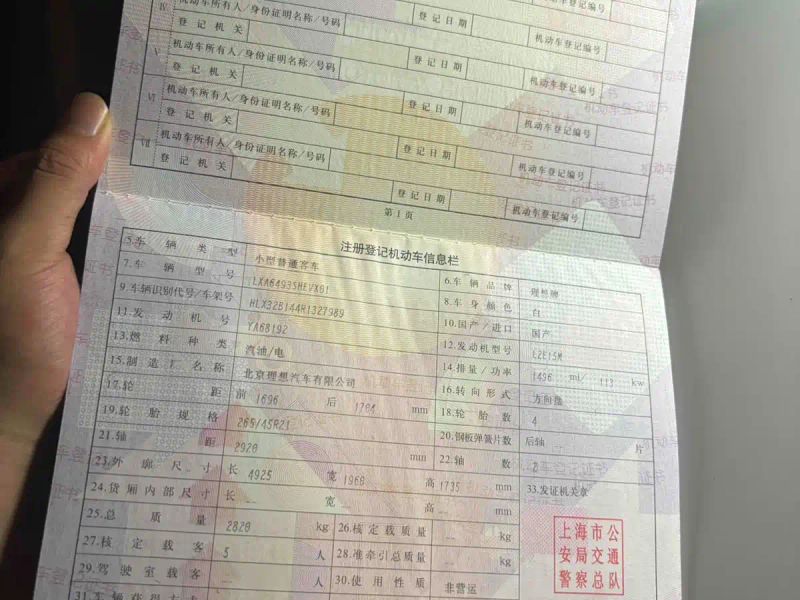 机动车所有人/身份证明名称/号码
Ⅳ 登记机关 登记日期 机动车登记编号
机动车所有人/身份证明名称/号码
Ⅴ 登记机关 登记日期 机动车登记编号
机动车所有人/身份证明名称/号码
Ⅵ 登记机关 登记日期 机动车登记编号
机动车所有人/身份证明名称/号码
Ⅶ 登记机关 登记日期 机动车登记编号
第1页
注册登记机动车信息栏
5.车辆类型 小型普通客车 6.车辆品牌 理想牌
7.车辆型号 LXA6493SHEVX01 8.车身颜色 白
9.车辆识别代号/车架号 HLX32B144R1327989 10.国产/进口 国产
11.发动机号 YA68192 12.发动机型号 L2E15M
13.燃料种类 汽油/电 14.排量/功率 1496 ml/ 113 kw
15.制造厂名称 北京理想汽车有限公司 16.转向形式 方向盘
17.轮距 前 1696 后 1704 mm 18.轮胎数 4
19.轮胎规格 265/45R21 20.钢板弹簧片数 后轴 片
21.轴距 2920 mm 22.轴数 2
23.外廓尺寸 长 4925 宽 1960 高 1735 mm 33.发证机关章
24.货厢内部尺寸 长 -- 宽 高 -- mm
25.总质量 2820 kg 26.核定载质量 -- kg
27.核定载客 5 人 28.准牵引总质量 -- kg
29.驾驶室载客 -- 人 30.使用性质 非营运
上海市公
安局交通
警察总队